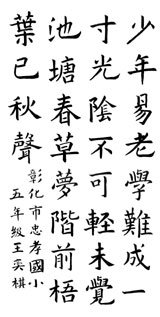 少年易老學難成一
寸光陰不可輕未覺
池塘春草夢階前梧
葉已秋聲
彰化市忠孝國小
五年級王奕棋